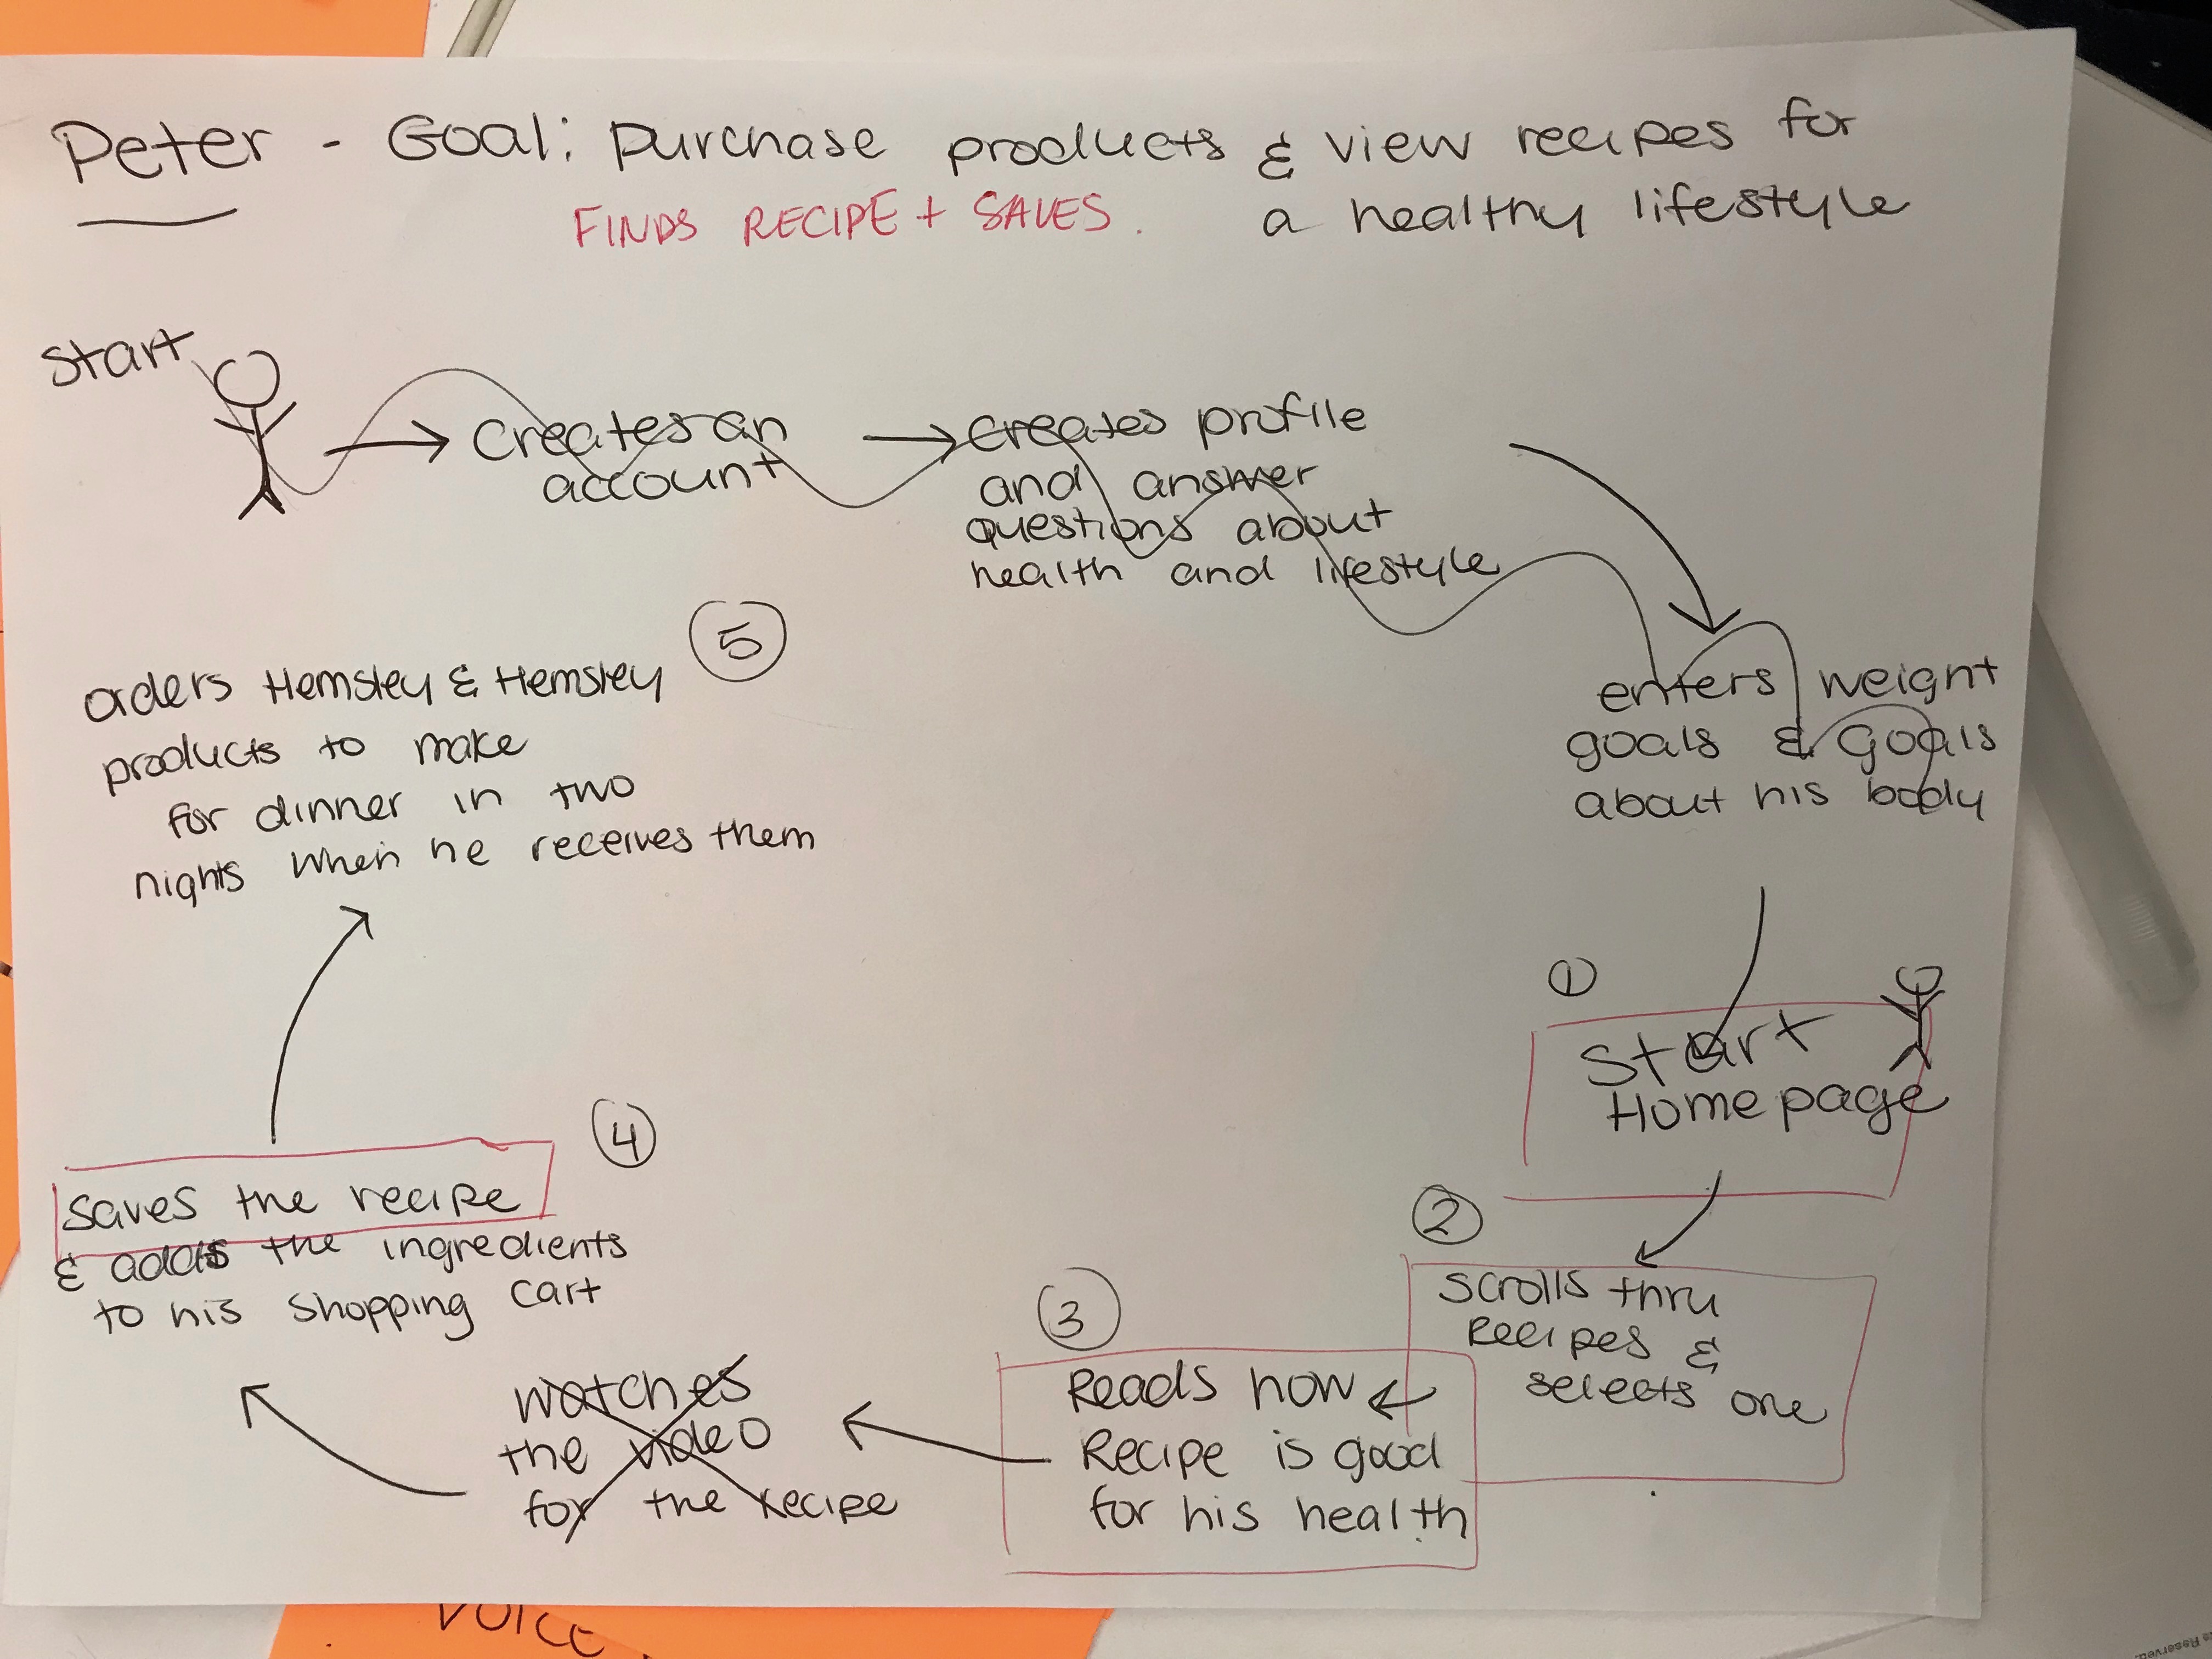 Peter - Goal: purchase products & view recipes for
a healthy lifestyle
FINDS RECIPE + SAVES.
Start
Creates an
account
Creates profile
and answer
questions about
health and lifestyle
enters weight
goals & goals
about his body
1
Start
Homepage
2
Scrolls thru
Recipes &
selects one
3
Reads how
Recipe is good
for his health
watches
the video
for the recipe
4
saves the recipe
& adds the ingredients
to his shopping cart
5
orders Hemsley & Hemsley
products to make
for dinner in two
nights when he receives them
VOICE